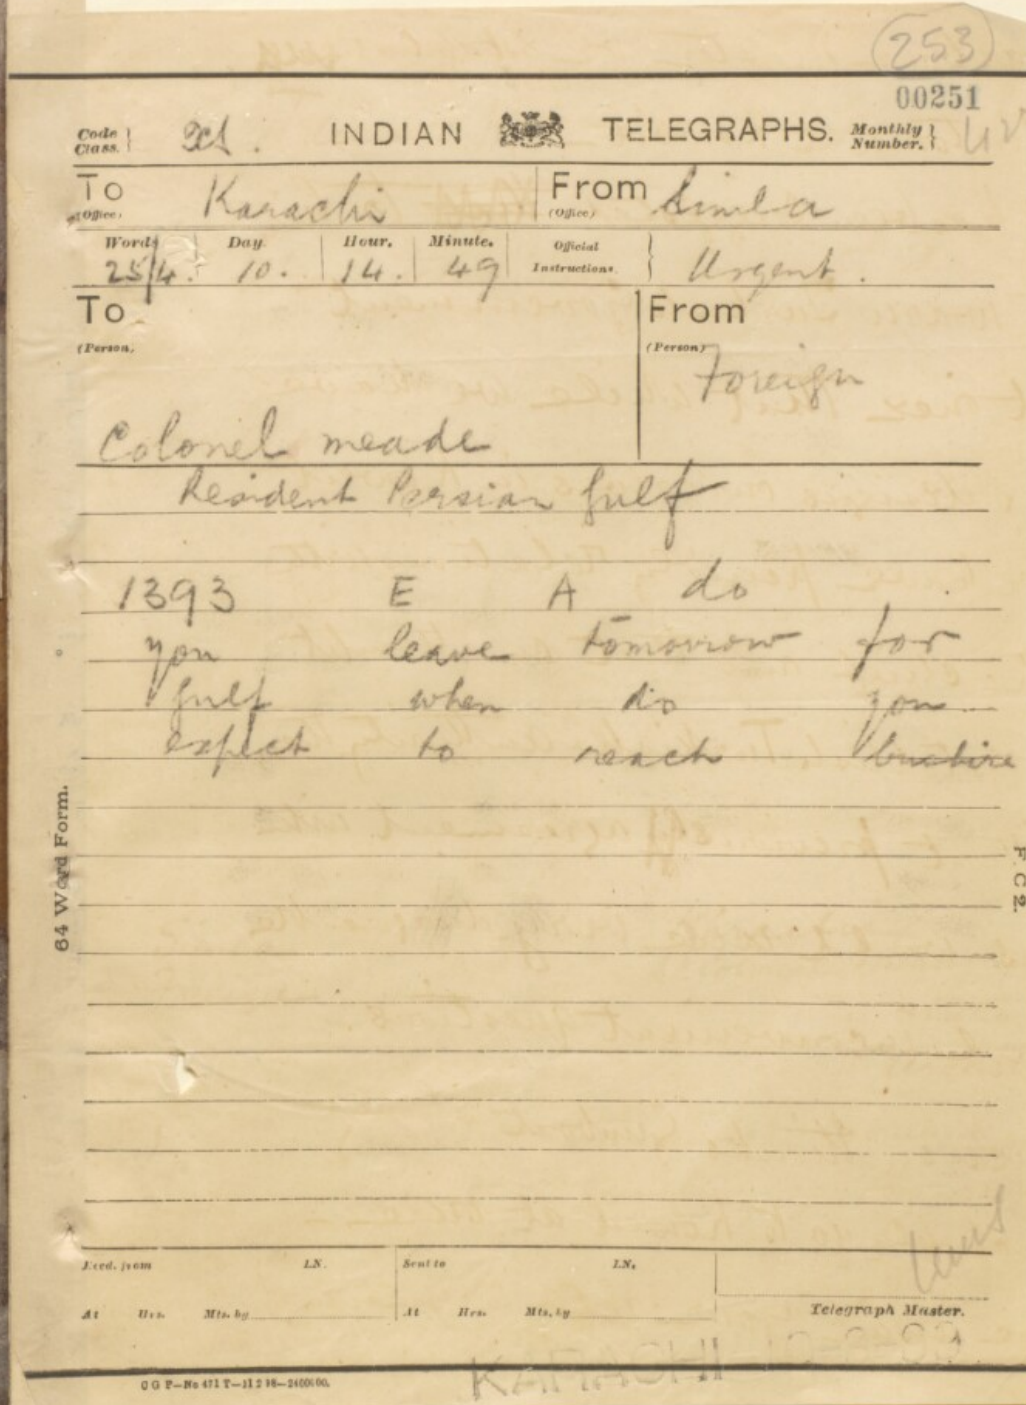 253
00251
Code Class. INDIAN TELEGRAPHS. Monthly Number.
To (Office) Karachi From (Office) Simla
Words Day. Hour. Minute. Official Instructions.
25/4. 10. 14. 49 Urgent.
To (Person) From (Person)
Foreign
Colonel meade
Resident Persian gulf
1393 E A do
you leave tomorrow for
gulf when do you
expect to reach bushire
64 Word Form.
F C 2.
Recd. from I.N. Sent to I.N.
At Hrs. Mts. by At Hrs. Mts. by Telegraph Master.
KARACHI